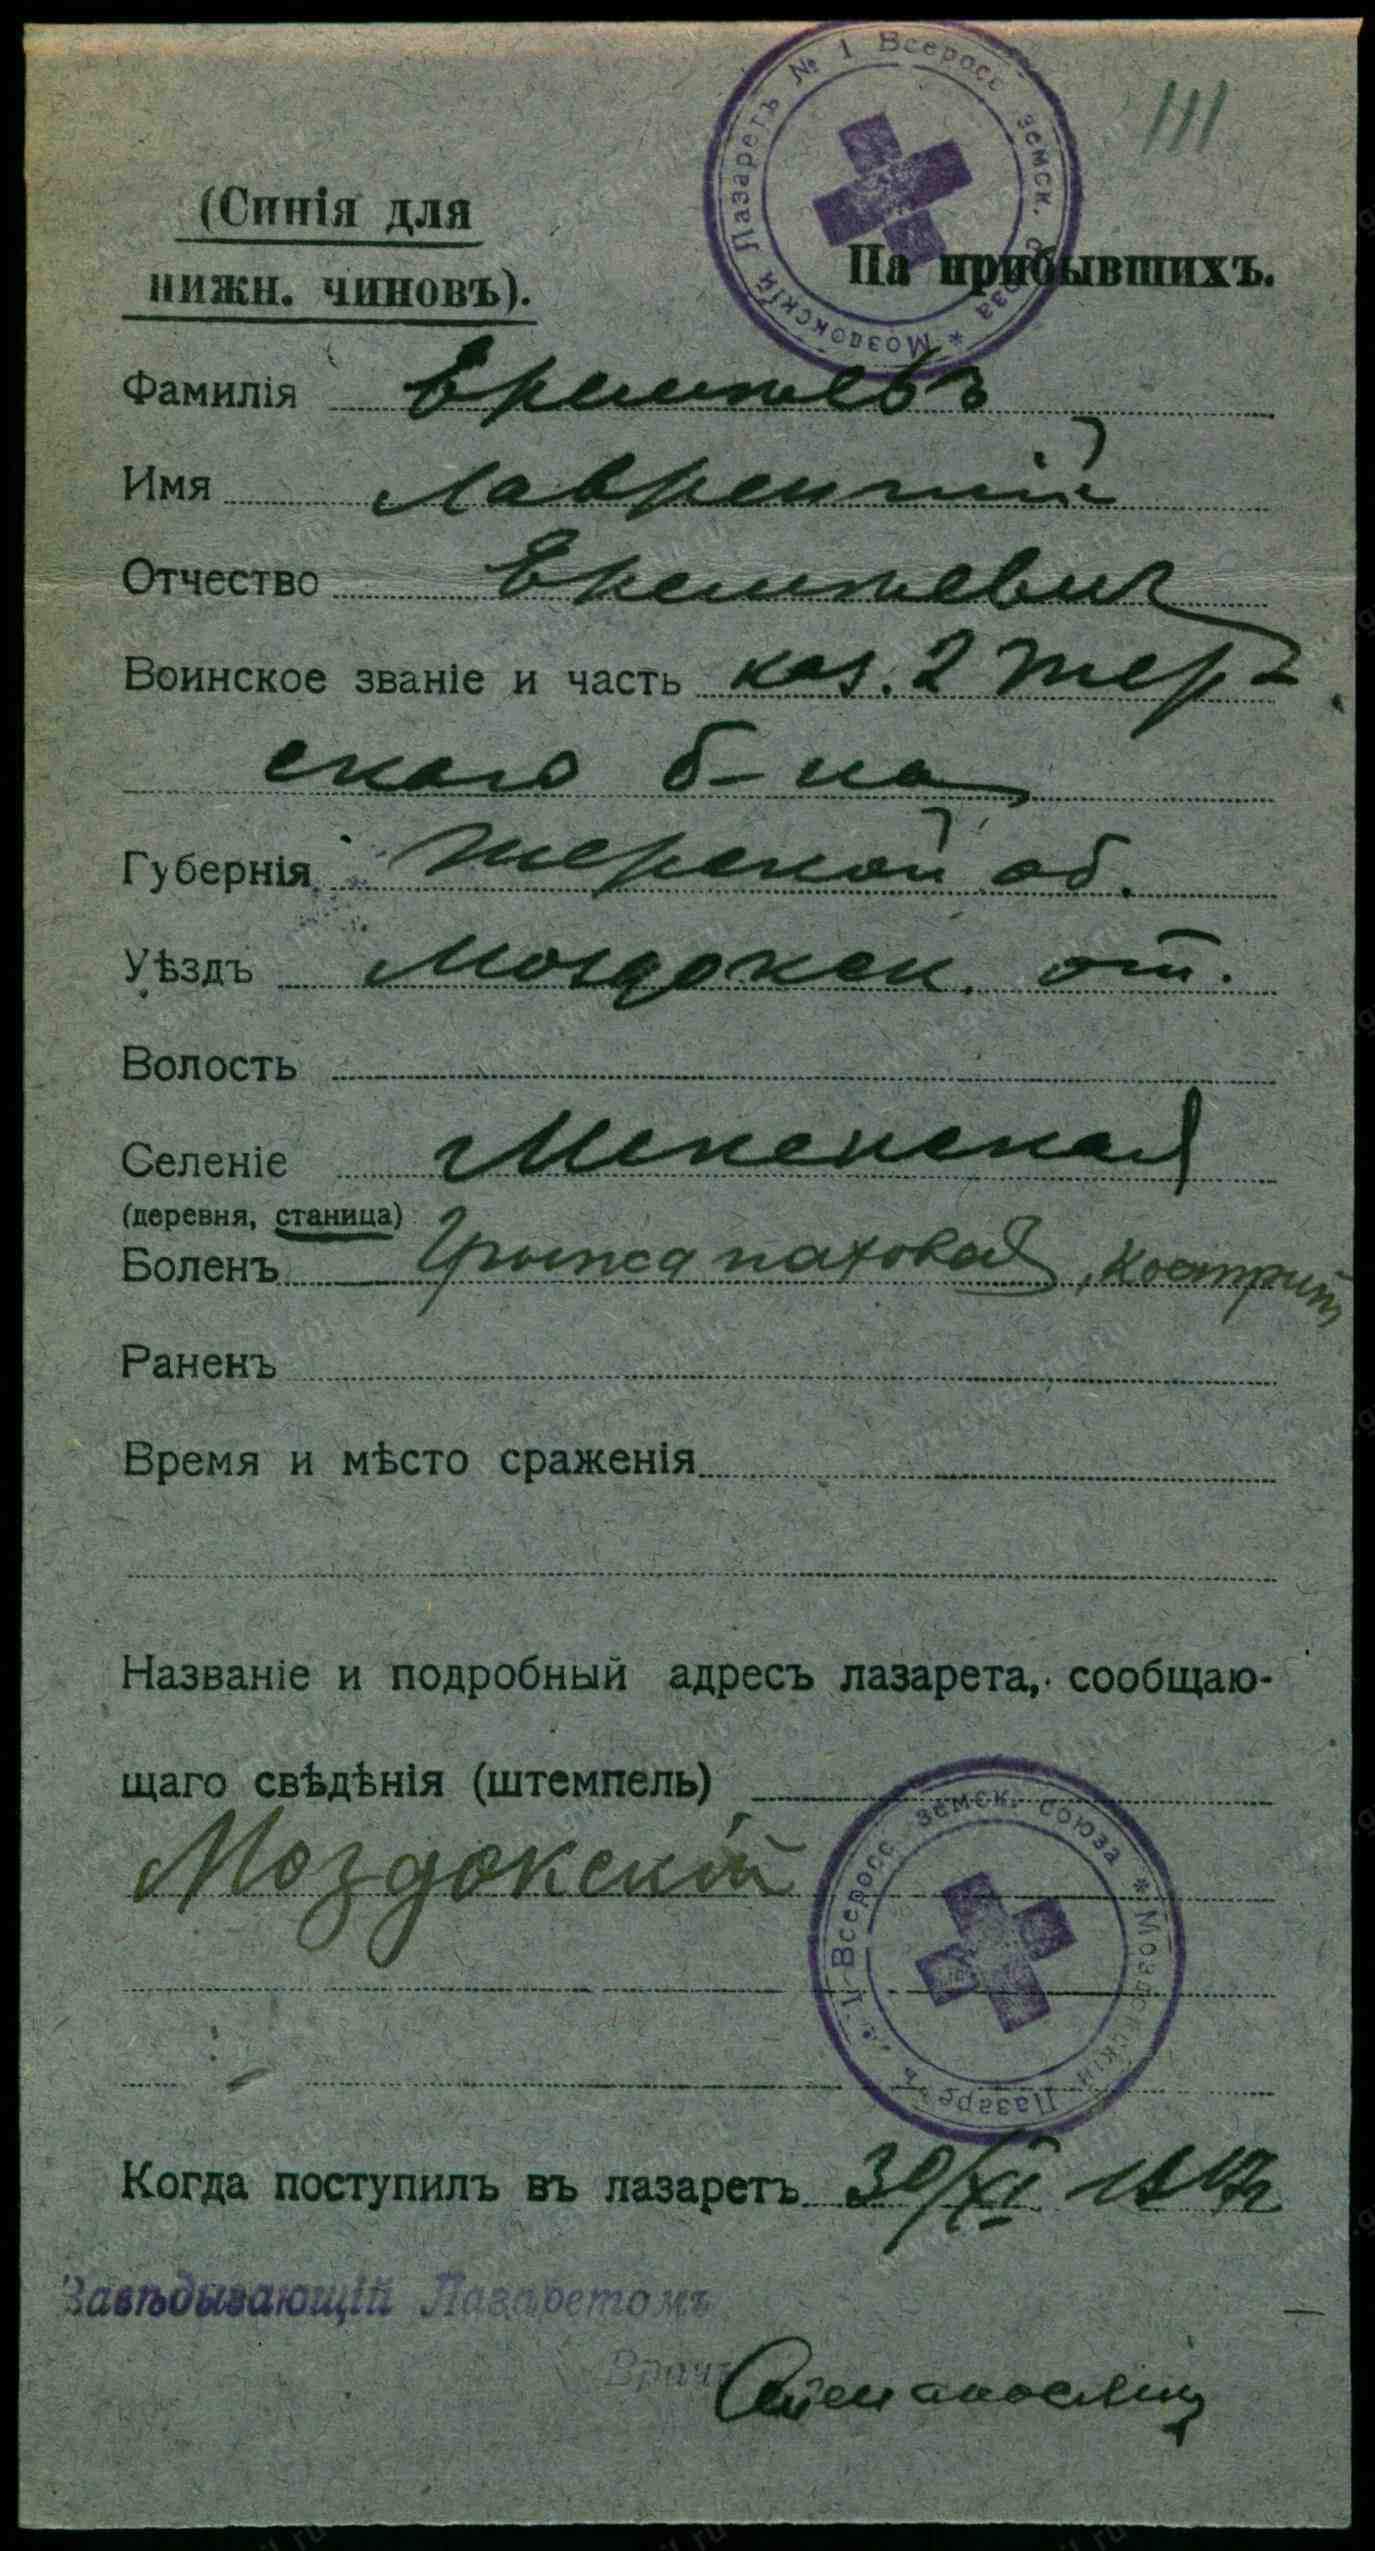 Моздокскій Лазаретъ № 1 Всеросс. земск. союза *
111
(Синія для
нижн. чиновъ).
На прибывшихъ.
Фамилія Ерем
Имя Лаврентій
Отчество
Воинское званіе и часть каз. 2 Тер-
скаго б-на
Губернія Терской об.
Уѣздъ Моздокск. от.
Волость
Селеніе Мекенская
(деревня, станица)
Боленъ Грыжа паховая,
Раненъ
Время и мѣсто сраженія
Названіе и подробный адресъ лазарета, сообщаю-
щаго свѣдѣнія (штемпель)
Моздокскій
Моздокскій Лазаретъ № 1 Всеросс. земск. союза *
Когда поступилъ въ лазаретъ 30/XI 1917г
Завѣдывающій Лазаретомъ
Врачъ